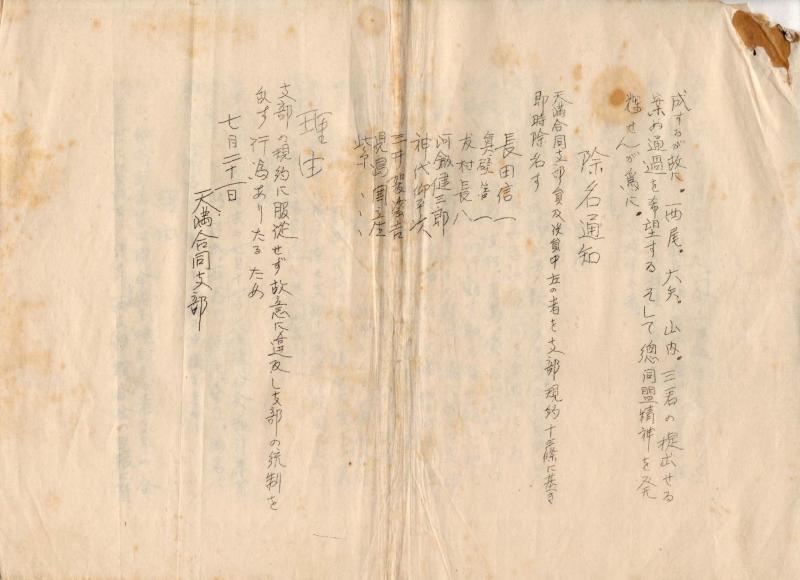 成するが故に。西尾。大矢。山内。三君の提出せる
案お通過を希望する そして總同盟精神を発
揮せんが爲に。
除名通知
天満合同支部員及役員中左の者を支部規約十三條に基き
即時除名す
長田信一
真壁善一
友村長八
河飯健三郎
神代仰平次
三井駿治吉
児島国庄
柴、、、
理由
支部の規約に服從せず故意に違反し支部の統制を
みだす行為ありたるため
七月二十一日
天満合同支部